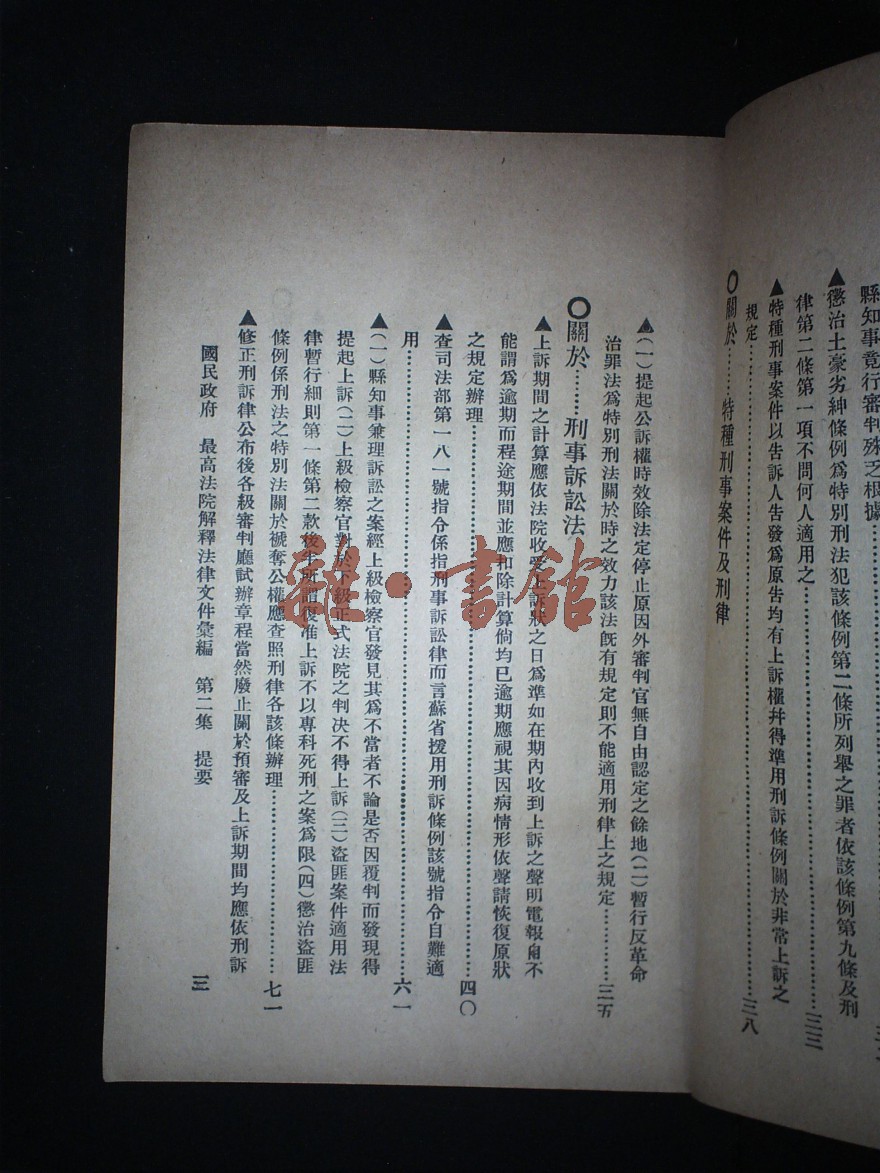 縣知事竟行審判殊乏根據
▲懲治土豪劣紳條例爲特別刑法犯該條例第二條所列舉之罪者依該條例第九條及刑
律第二條第一項不問何人適用之………三三
▲特種刑事案件以告訴人告發爲原告均有上訴權幷得準用刑訴條例關於非常上訴之
規定………三八
〇關於……特種刑事案件及刑律
▲(一)提起公訴權時效除法定停止原因外審判官無自由認定之餘地(二)暫行反革命
治罪法爲特別刑法關於時之效力該法旣有規定則不能適用刑律上之規定………三五
〇關於……刑事訴訟法
▲上訴期間之計算應依法院收受上訴狀之日爲準如在期內收到上訴之聲明電報自不
能謂爲逾期而程途期間並應扣除計算倘均已逾期應視其因病情形依聲請恢復原狀
之規定辦理………四〇
▲查司法部第一八一號指令係指刑事訴訟律而言蘇省援用刑訴條例該號指令自難適
用………六一
▲(一)縣知事兼理訴訟之案經上級檢察官發見其爲不當者不論是否因覆判而發現得
提起上訴(二)上級檢察官對於下級正式法院之判决不得上訴(三)盜匪案件適用法
律暫行細則第一條第二款後半所謂復准上訴不以專科死刑之案爲限(四)懲治盜匪
條例係刑法之特別法關於褫奪公權應查照刑律各該條辦理………七一
▲修正刑訴律公布後各級審判廳試辦章程當然廢止關於預審及上訴期間均應依刑訴
國民政府 最高法院解釋法律文件彙編 第二集 提要 三
雜·書館